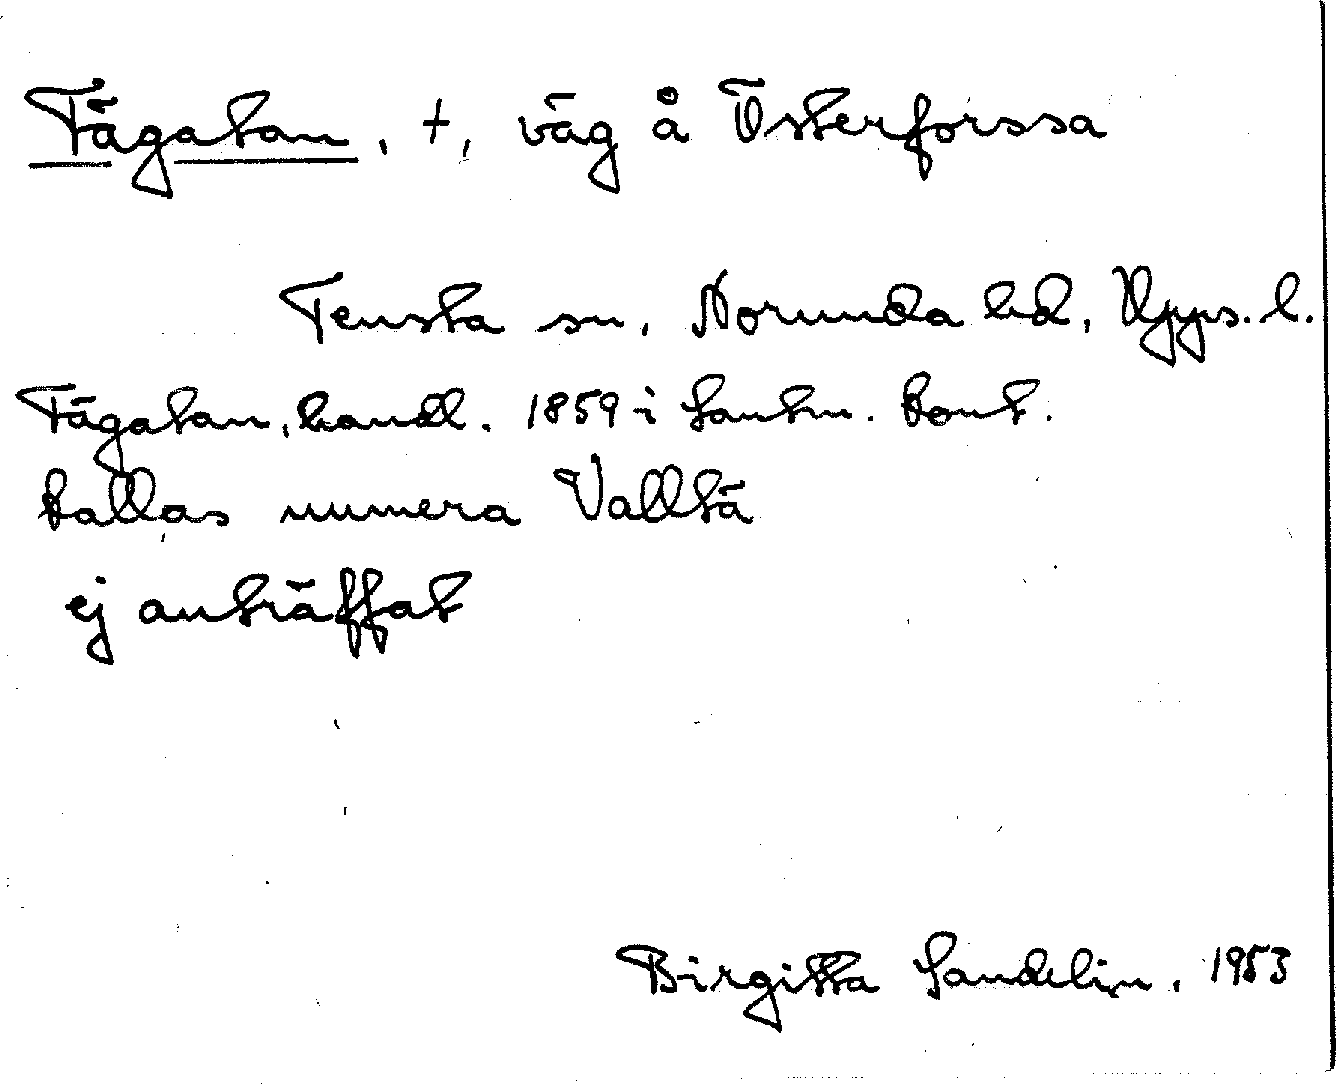 Fägatan, +, väg å Österforssa
Tensta sn, Norunda hd, Upps. l.
Fägatan, handl. 1859 i Lantm. kont.
kallas numera Valltä
ej anträffat
Birgitta Sandelin, 1953